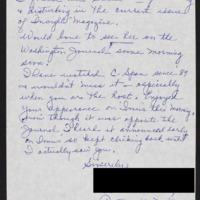 & disturbing in the current issue
of Insight Magazine.
Would love to see her on the
Washington Journal some morning
soon.
I have watched C-Span since 89
& wouldn't miss it - especially
when you are the host. Enjoyed
your appearance on Imus this morning,
even though it was opposite the
Journal I heard it announced early
on Imus so kept clicking back until
I actually saw you.
Sincerely,